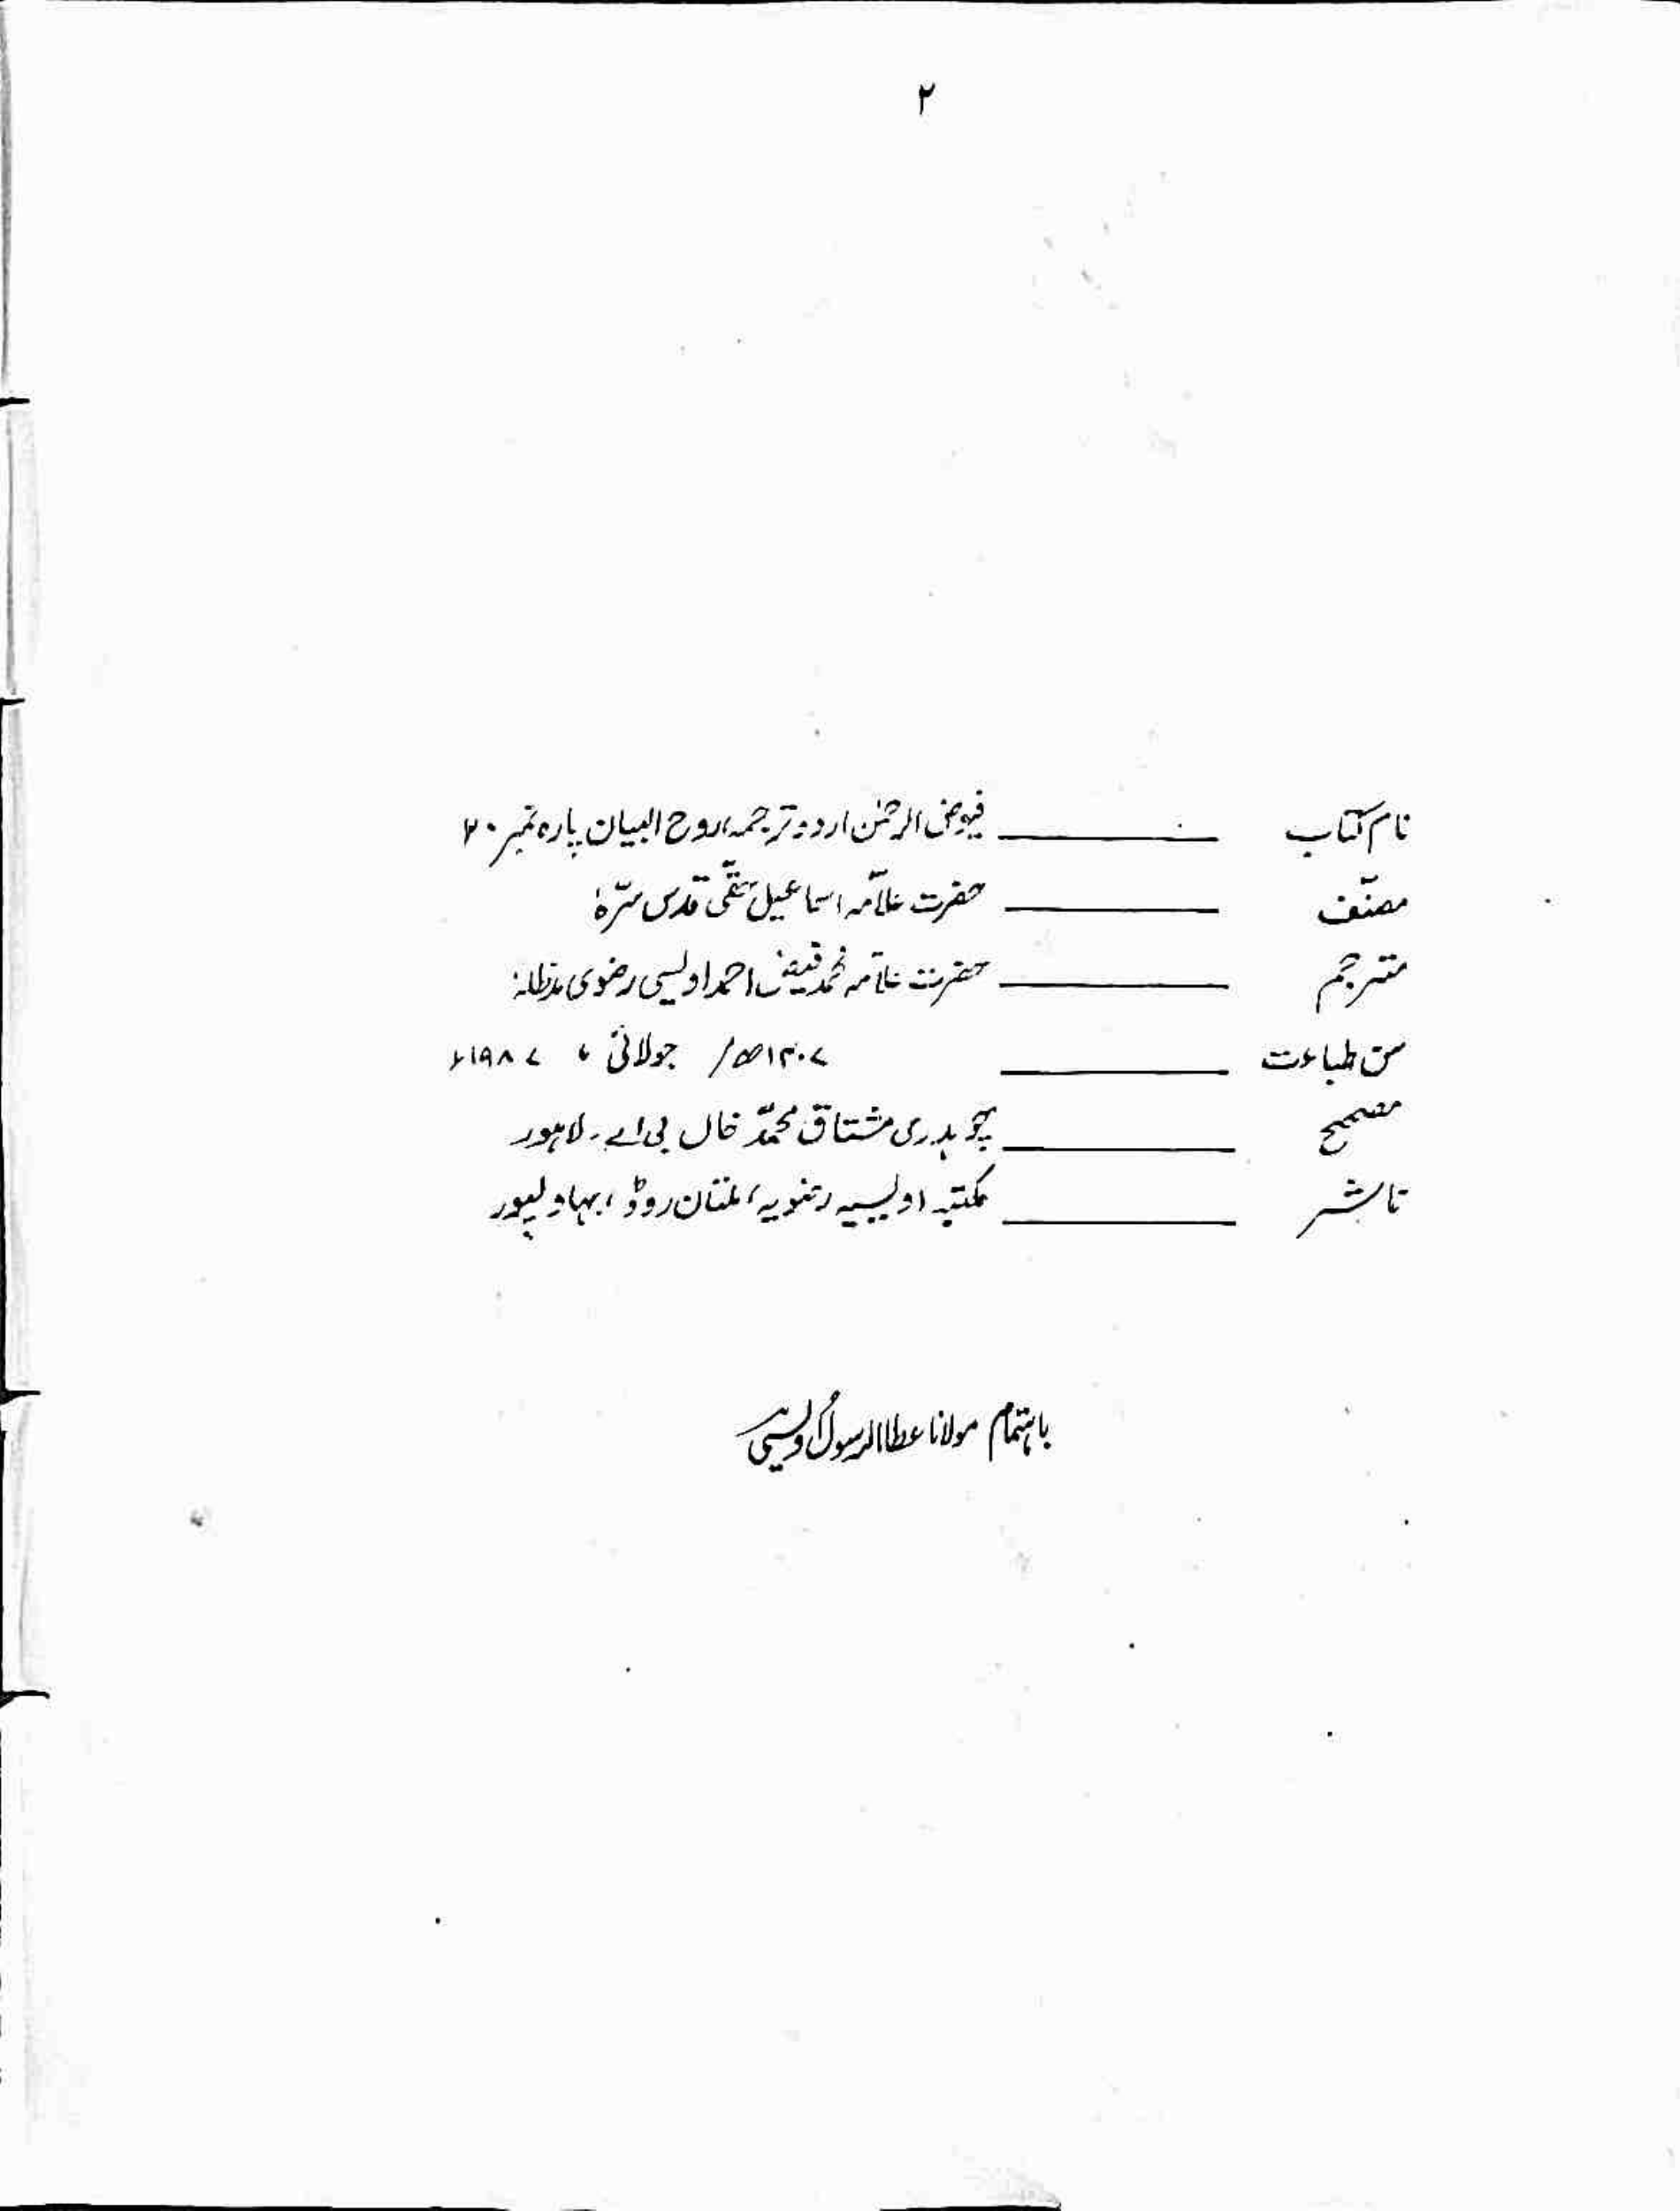 ۲
نام کتاب ـــــــــ فیوض الرحمٰن اردو ترجمہ روح البیان پارہ نمبر ۳۰
مصنّف ـــــــــ حضرت علّامہ اسماعیل حقّی قدس سرّہٗ
مترجم ـــــــــ حضرت علّامہ محمد فیض احمد اویسی رضوی مدظلہٗ
سن طباعت ـــــــــ ۱۴۰۷ھ / جولائی ، ۱۹۸۷ء
مصحح ـــــــــ چوہدری مشتاق محمّد خاں بی اے۔ لاہور
ناشر ـــــــــ مکتبہ اویسیہ رضویہ، ملتان روڈ، بہاولپور
باہتمام مولانا عطا الرسول اویسی